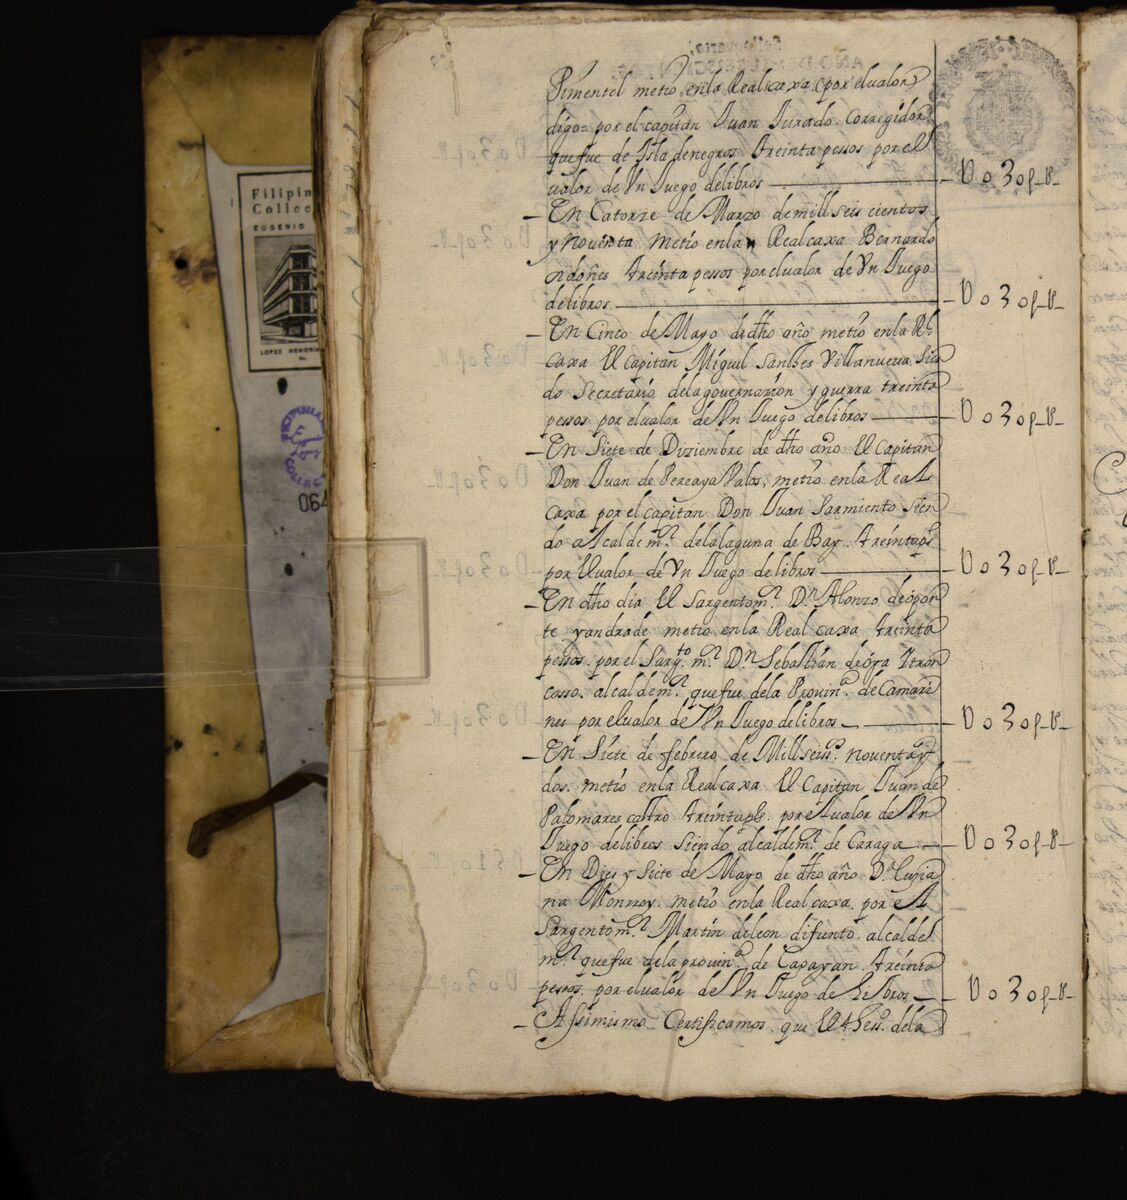 Filipin
Collec
EUGENIO
LOPEZ MEMORIA
064
Pimentel metio en la Real caxa (por el ualor
digo= por el capitan Juan Jurado Corregidor
que fue de Isla de negros treinta pessos por el
ualor de Vn Juego de libros — U o 3 o p_U_
En Catorze de Marzo de mill seis cientos
y noventa metio en la Real caxa Bernardo
treinta pessos por el ualor de Vn Juego
de libros — U o 3 o p_U_
En Cinco de Mayo de dho año metio en la Rl
caxa El Capitan Miguel Sanches Villanueua Sien
do Secretario de la gouernacion y guerra treinta
pessos por el ualor de Vn Juego de libros — U o 3 o p_U_
En Siete de Diziembre de dho año El Capitan
Don Juan de metio en la Real
Caxa por el capitan Don Juan Sarmiento Sien
do alcalde mor. de la laguna de Bay treinta ps
por El ualor de Vn Juego de libros — U o 3 o p_U_
En dho dia El Sargento mor. Dn Alonzo de opor
te y andrade metio en la Real caxa treinta
pessos por el Sargto. mor. Dn Sebastian de
alcalde mor. que fue de la Prouina. de Camari
nes por el ualor de Vn Juego de libros — U o 3 o p_U_
En Siete de febrero de Mill seiss. noventa y
dos metio en la Real caxa El Capitan Juan de
Palomares castro treinta ps. por el ualor de Vn
Juego de libros Siendo alcalde mor. de Caraga — U o 3 o p_U_
En Dies y Siete de Mayo de dho año Da. Lucia
na Monrroy metio en la Real caxa por el
Sargento mor. Martin de leon difunto alcalde
mor. que fue de la prouina. de Cagayan treinta
pessos por el ualor de Vn Juego de Libros — U o 3 o p_U_
Assimismo Certificamos que El thesso. de la